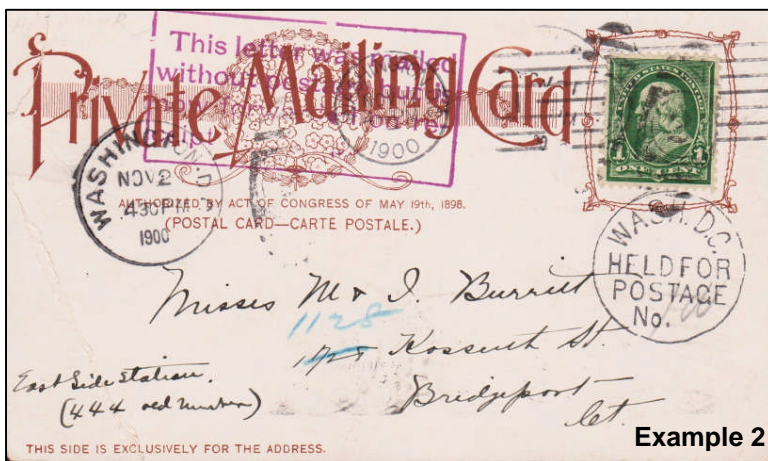 This letter was mailed
without
Private Mailing Card
1900
WASHINGTON, D.
NOV 2
4-30PM
1900
AUTHORIZED BY ACT OF CONGRESS OF MAY 19th, 1898.
(POSTAL CARD—CARTE POSTALE.)
UNITED STATES POSTAGE
1 1
ONE CENT
WASH. D.C.
HELD FOR
POSTAGE
No.
Misses M & I. Burritt
1128
Kossuth St.
East Side Station.
(444 old number)
Bridgeport
Ct.
THIS SIDE IS EXCLUSIVELY FOR THE ADDRESS.
Example 2